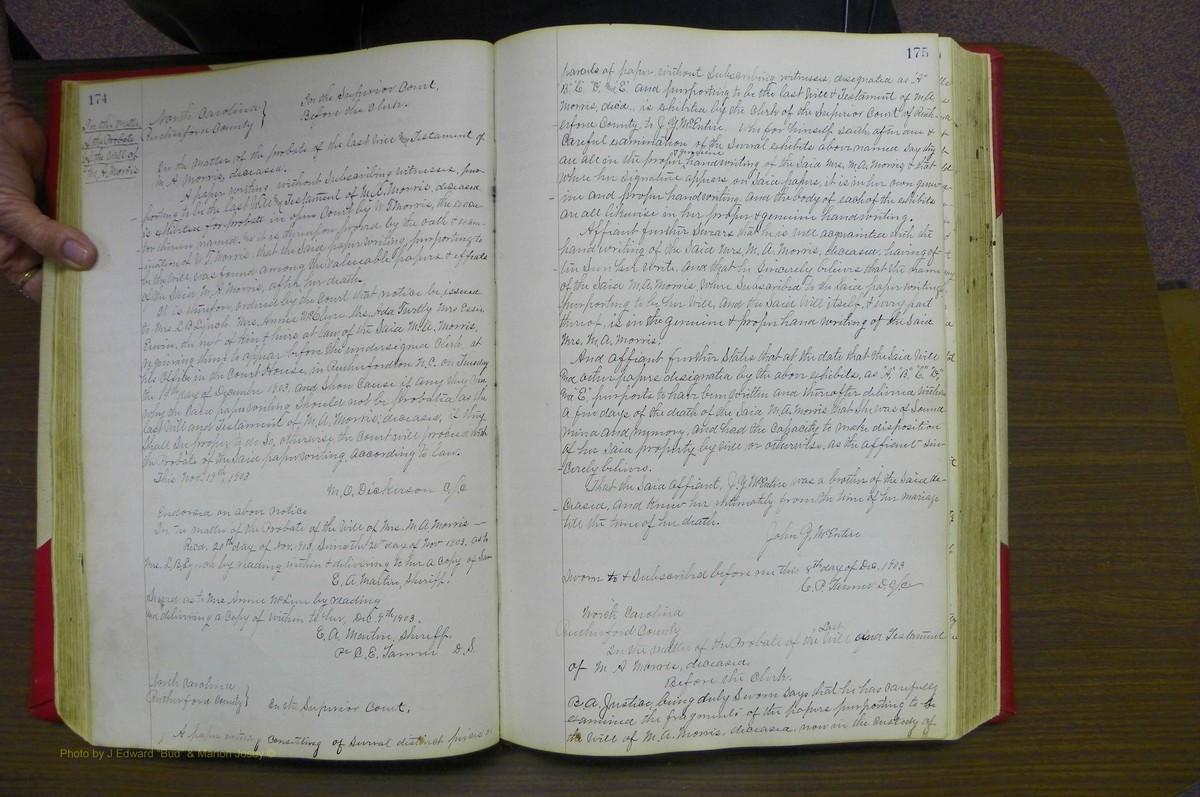 174
In the matter
of the Probate
of the will of
M. A. Morris
North Carolina
Rutherford County
In the Superior Court,
Before the Clerk.
In the matter of the probate of the last Will & Testament of
M. A. Morris, deceased.
A paper writing without subscribing witnesses, pur-
porting to be the last Will & Testament of M. A. Morris, deceased
is exhibited for probate in open Court by W T Morris, the execu-
tor therein named, and it is thereupon proved by the oath & exam-
ination of W. T. Morris, that the said paper writing, purporting to
be the will, was found among the valuable papers & effects
of the said M. A. Morris, after her death.
It is therefore, ordered by the Court that notice be issued
to Mrs L B Lynch, Mrs. Annie McClure, Mrs. Ada Mrs
the next of kin & heirs at law of the said M. A. Morris,
requiring them to appear before the undersigned Clerk, at
his Office in the Court House, in Rutherfordton N.C. on Tuesday
the 8th day of December 1903, and show cause if any they have
why the said paper writing should not be probated as the
last will and Testament of M. A. Morris, deceased, if they
shall see proper to do so, otherwise the Court will proceed with
the Probate of the said paper writing, according to law.
This Nov. 19th, 1903
M. O. Dickerson C S C
Endorsed on above notice
In re matter of the Probate of the Will of Mrs. M. A. Morris —
Recd. 20th day of Nov. 1903, Served the 20th day of Nov 1903, as to
Mrs. L B Lynch by reading within & delivering to her a copy of same
E. A. Martin, Sheriff.
Served as to Mrs Annie McClure by reading
and delivering a copy of within to her, Dec. 4th 1903.
E. A. Martin, Sheriff.
Per C. E. Tanner D. S.
North Carolina
Rutherford County
In the Superior Court.
A paper writing consisting of several distinct pieces or
175
parcels of paper, without subscribing witnesses, designated as "A"
"B" "C" "D" and "E" and purporting to be the last Will & Testament of M. A.
Morris, decd., is exhibited by the Clerk of the Superior Court of Ruth-
erford County to J. Y. McEntire. Who for himself saith, after due &
careful examination of the several exhibits above named say they
are all in the proper & genuine handwriting of the said Mrs. M. A. Morris & that
where her signature appears on said papers, it is in her own genu-
ine and proper handwriting. And the body of each of the exhibits
are all likewise in her proper & genuine handwriting.
Affiant further swears that he is well acquainted with the
hand writing of the said Mrs M. A. Morris, deceased, having of-
ten seen her write. And that he sincerely believes that the name
of the said M. A. Morris, where subscribed to the said paper writing
purporting to be her will, and the said will itself, & every part
thereof, is in the genuine & proper hand writing of the said
Mrs. M. A. Morris.
And affiant further states that at the date that the said will
and other papers designated by the above exhibits, as "A" "B" "C" "D"
and "E" purports to have been written and thereafter delivered within
a few days of the death of the said M. A. Morris that she was of sound
mind and memory, and had the capacity to make disposition
of her said property by will or otherwise, as the affiant sin-
cerely believes.
That the said affiant, J. Y. McEntire was a brother of the said de-
ceased, and knew her intimately from the time of her mariage
till the time of her death.
John Y. McEntire
Sworn to & Subscribed before me this 8th day of Dec. 1903
C. P. Tanner D. C S C
North Carolina
Rutherford County
In the matter of the Probate of the Last Will and Testament
of M A Morris, deceased
Before the Clerk.
B. A. Justice, being duly sworn says that he has carefully
examined the fragments of the papers purporting to be
the will of M. A. Morris, deceased, now in the custody of
Photo by J Edward "Bud" & Marion Jossey ©